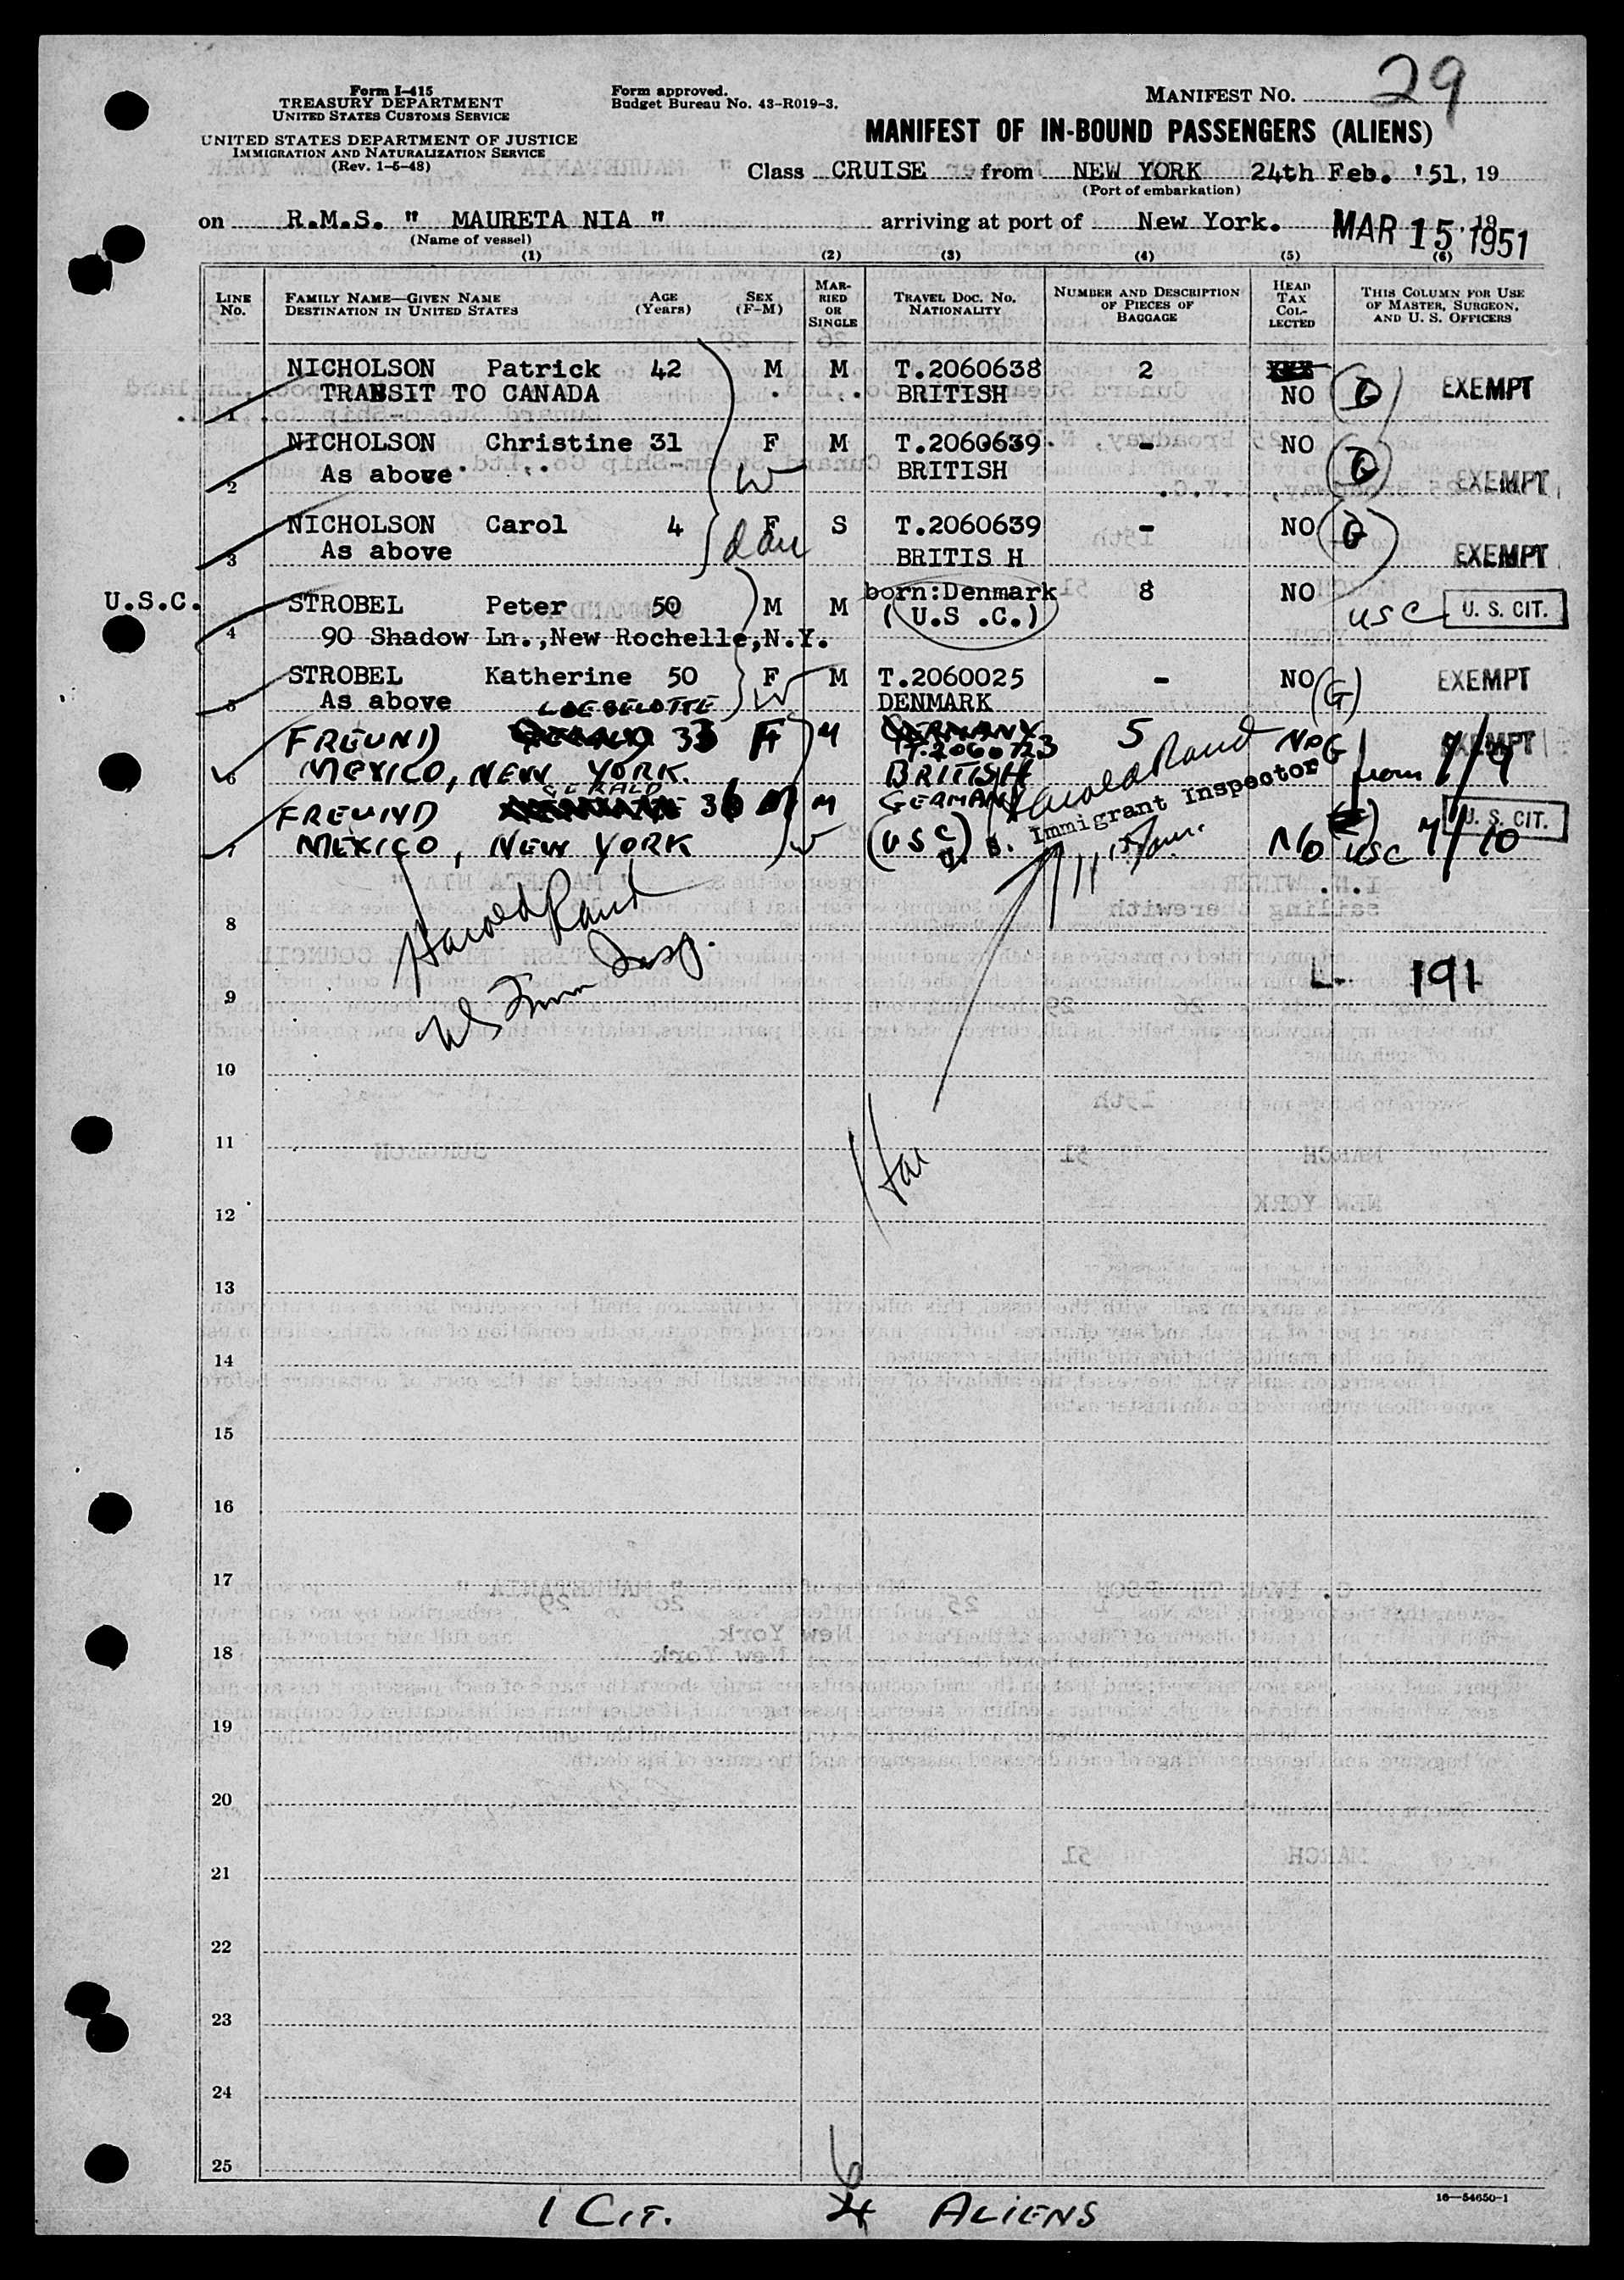 Form I-415
TREASURY DEPARTMENT
UNITED STATES CUSTOMS SERVICE
UNITED STATES DEPARTMENT OF JUSTICE
IMMIGRATION AND NATURALIZATION SERVICE
(Rev. 1-5-48)
Form approved.
Budget Bureau No. 43-R019-3.
MANIFEST NO. 29
MANIFEST OF IN-BOUND PASSENGERS (ALIENS)
Class CRUISE from NEW YORK 24th Feb. '51, 19
(Port of embarkation)
on R.M.S. " MAURETA NIA " arriving at port of New York. MAR 15 1951 19
(Name of vessel)
(1) (2) (3) (4) (5) (6)
LINE No. FAMILY NAME—GIVEN NAME DESTINATION IN UNITED STATES AGE (Years) SEX (F-M) MARRIED OR SINGLE TRAVEL DOC. NO. NATIONALITY NUMBER AND DESCRIPTION OF PIECES OF BAGGAGE HEAD TAX COLLECTED THIS COLUMN FOR USE OF MASTER, SURGEON, AND U. S. OFFICERS
NICHOLSON Patrick 42 M M T.2060638 2 EXEMPT
1 TRANSIT TO CANADA BRITISH NO
NICHOLSON Christine 31 F M T.2060639 - NO
2 As above W BRITISH EXEMPT
NICHOLSON Carol 4 F S T.2060639 - NO G
3 As above dau BRITIS H EXEMPT
U.S.C. STROBEL Peter 50 M M born:Denmark 8 NO
4 90 Shadow Ln.,New Rochelle,N.Y. (U.S .C.) USC U. S. CIT.
STROBEL Katherine 50 F M T.2060025 - NO (G) EXEMPT
5 As above W DENMARK
LOE BELOTTE
FREUND 33 F M GERMANY 5 NO G EXEMPT
T.2060723
6 MEXICO, NEW YORK. BRITISH from 7/9
GERALD
FREUND 36 M M GERMANY
7 MEXICO, NEW YORK (USC) NO USC 7/10 U. S. CIT.
Harold Rand
U. S. Immigrant Inspector
Harold Rand
US Imm Insp.
8
9
L- 191
10
11
12
13
14
15
16
17
18
19
20
21
22
23
24
25
6
1 CIT. 4 ALIENS
16—54650-1